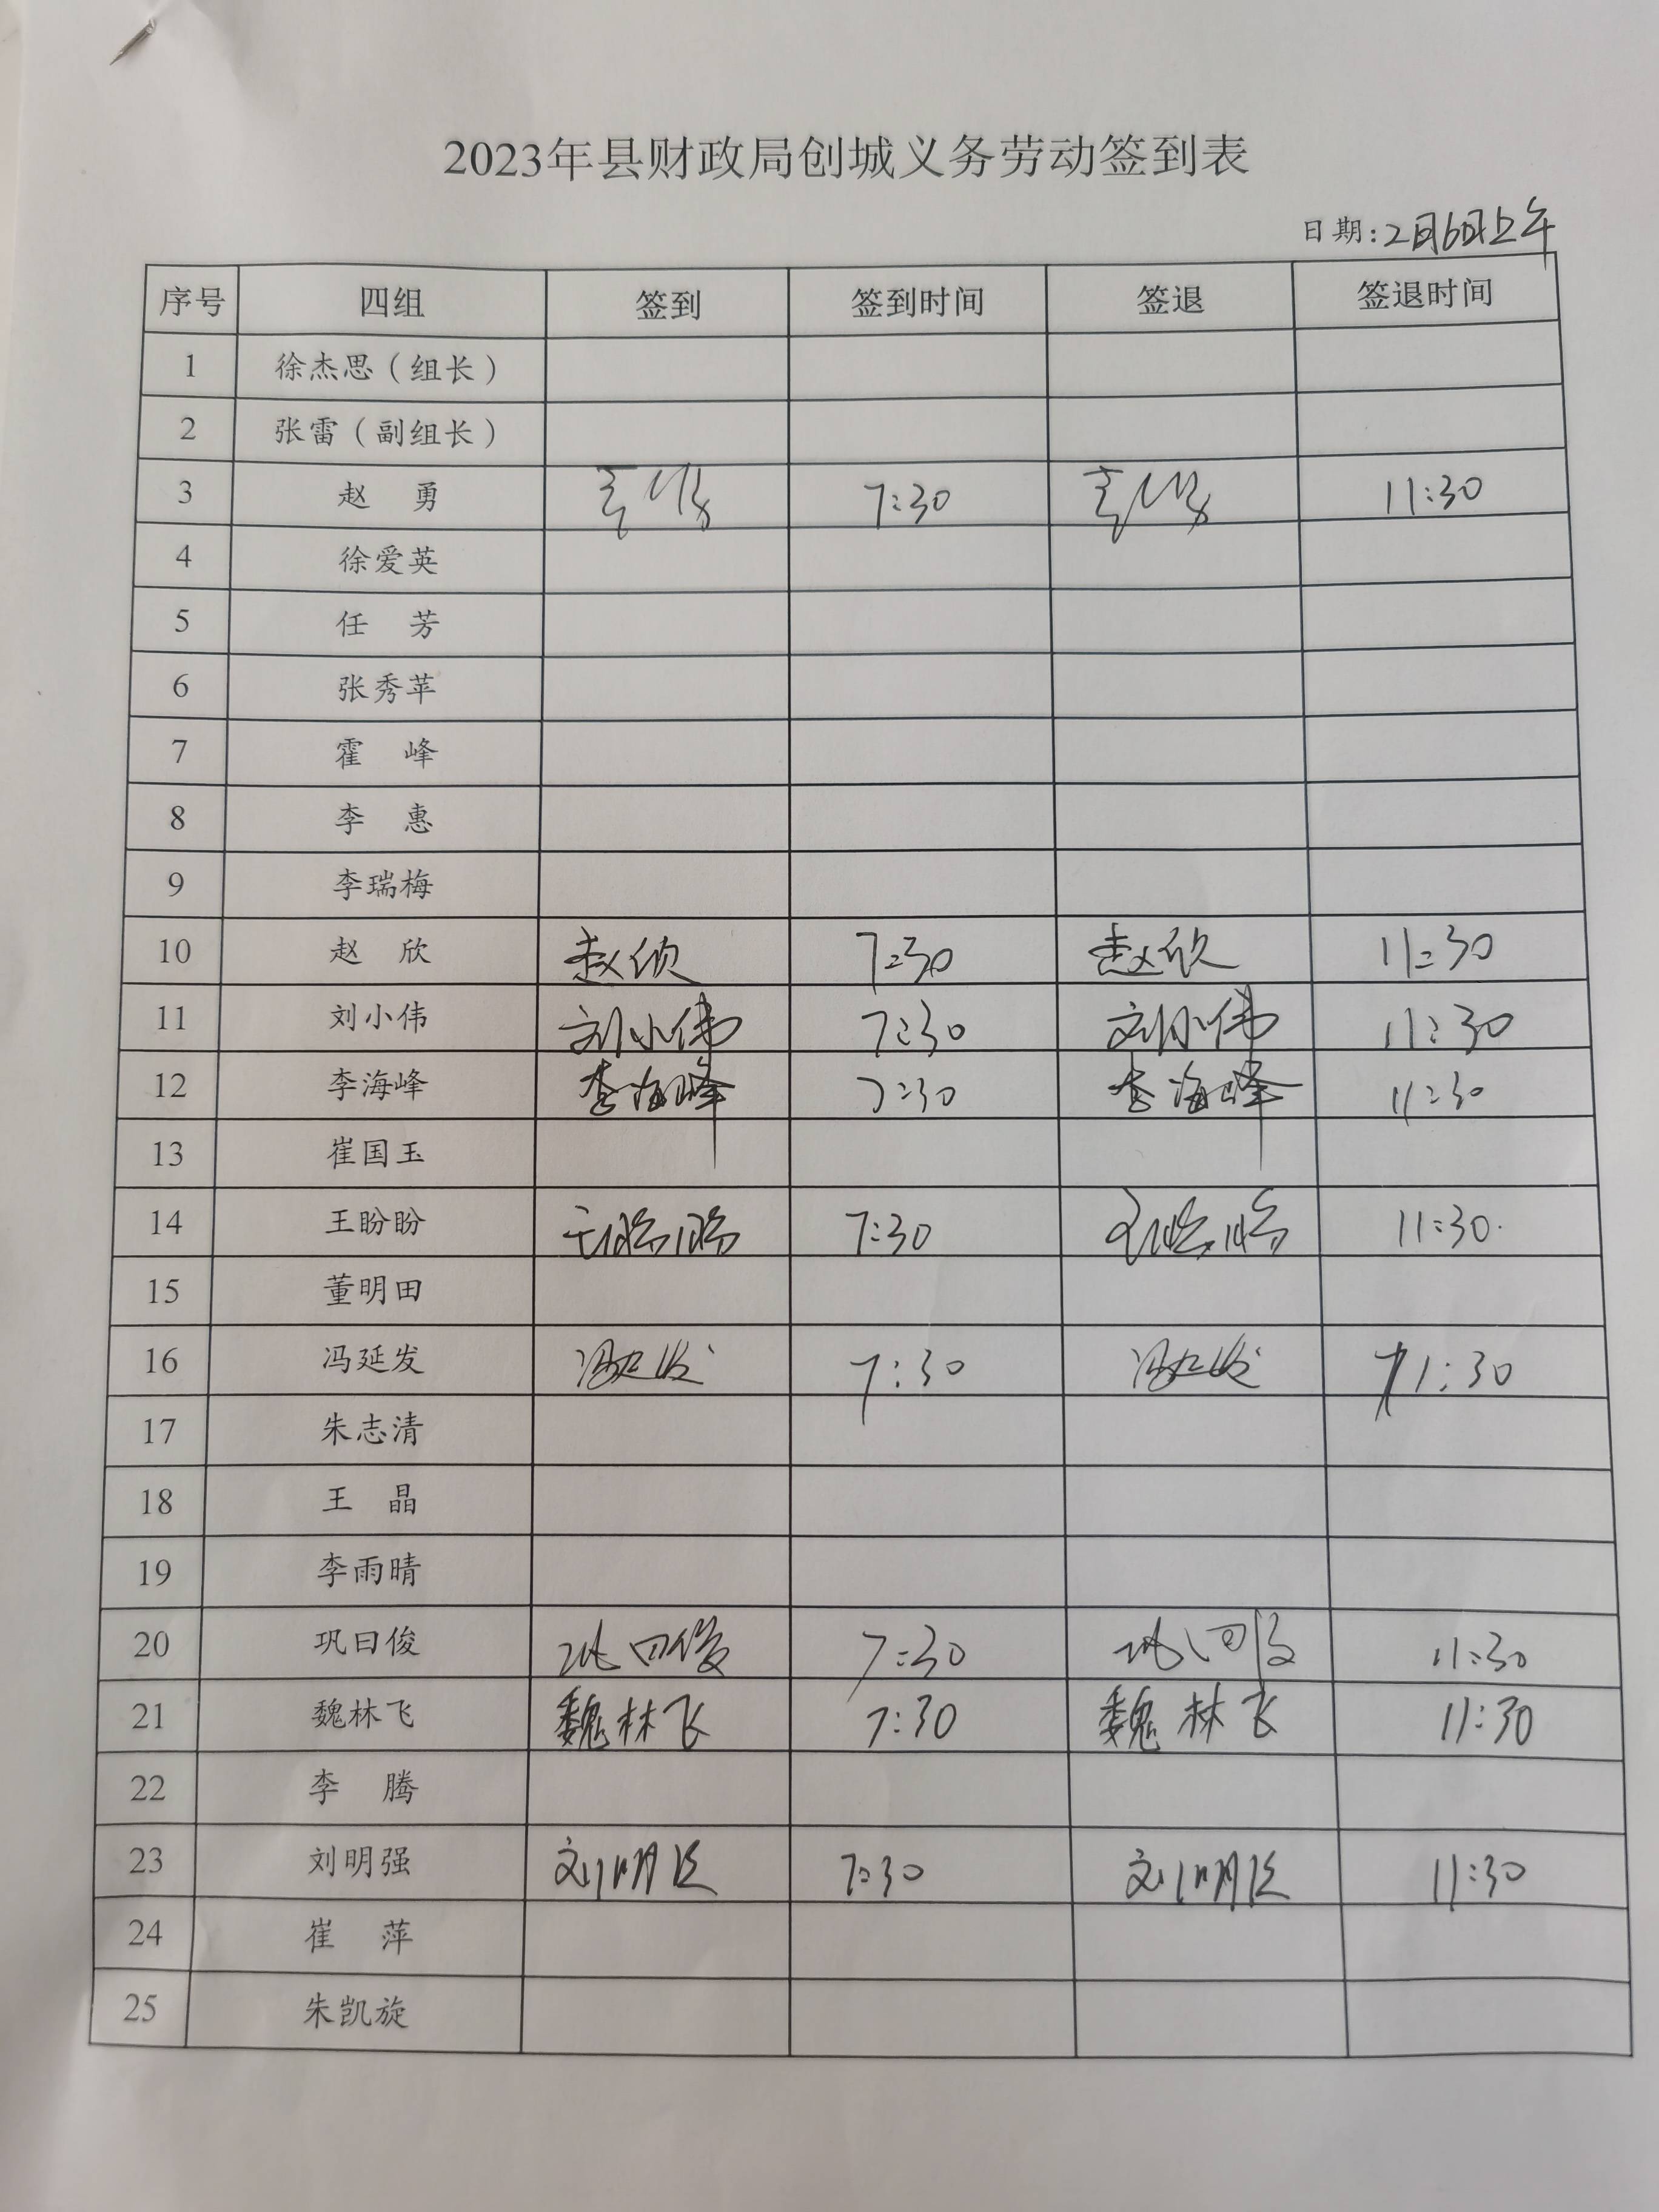 2023年县财政局创城义务劳动签到表
日期:2月6日上午
序号 四组 签到 签到时间 签退 签退时间
1 徐杰思（组长）
2 张雷（副组长）
3 赵 勇 赵勇 7:30 赵勇 11:30
4 徐爱英
5 任 芳
6 张秀苹
7 霍 峰
8 李 惠
9 李瑞梅
10 赵 欣 赵欣 7:30 赵欣 11:30
11 刘小伟 刘小伟 7:30 刘小伟 11:30
12 李海峰 李海峰 7:30 李海峰 11:30
13 崔国玉
14 王盼盼 王盼盼 7:30 王盼盼 11:30
15 董明田
16 冯延发 冯延发 7:30 冯延发 11:30
17 朱志清
18 王 晶
19 李雨晴
20 巩曰俊 巩曰俊 7:30 巩曰俊 11:30
21 魏林飞 魏林飞 7:30 魏林飞 11:30
22 李 腾
23 刘明强 刘明强 7:30 刘明强 11:30
24 崔 萍
25 朱凯旋